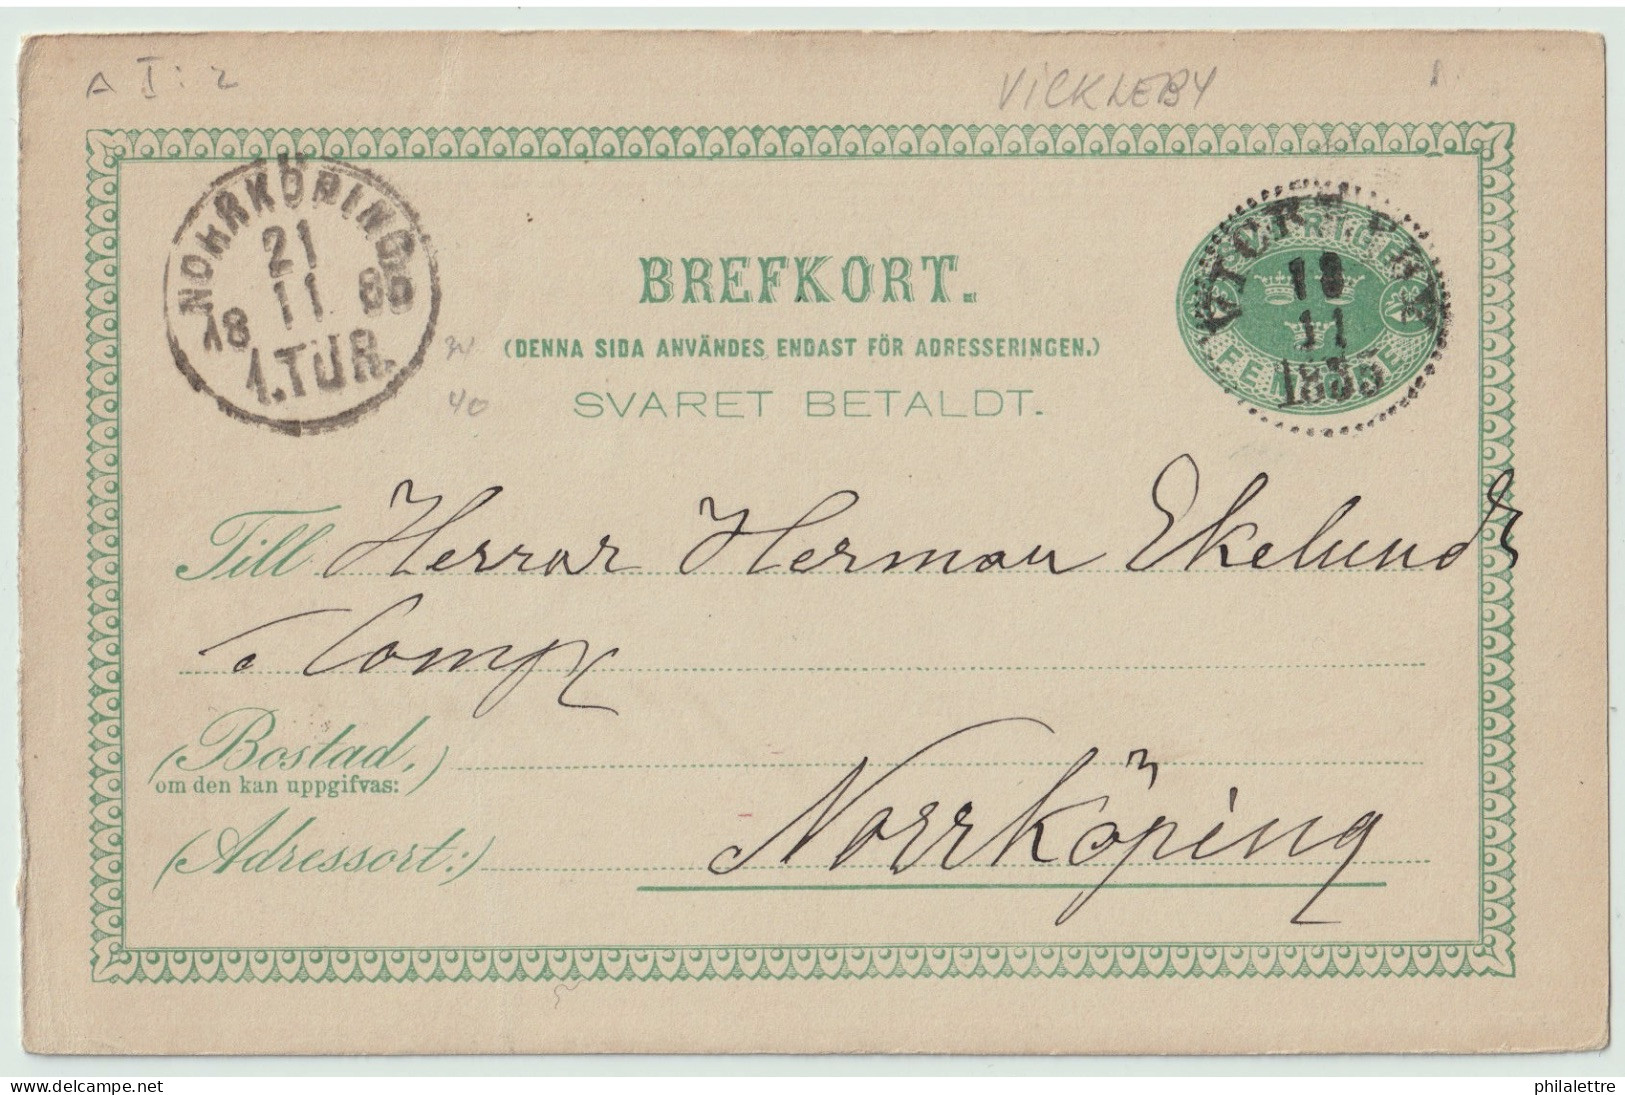 A I:2
VICKLEBY
NORRKÖPING
21
18 11 85
1.TUR.
SVERIGE
18
11
1885
FEM ÖRE
BREFKORT.
(DENNA SIDA ANVÄNDES ENDAST FÖR ADRESSERINGEN.)
SVARET BETALDT.
40
Till Herrar Herman Ekelund
& Comp
(Bostad,)
om den kan uppgifvas:
(Adressort:) Norrköping
delcampe.net
philalettre